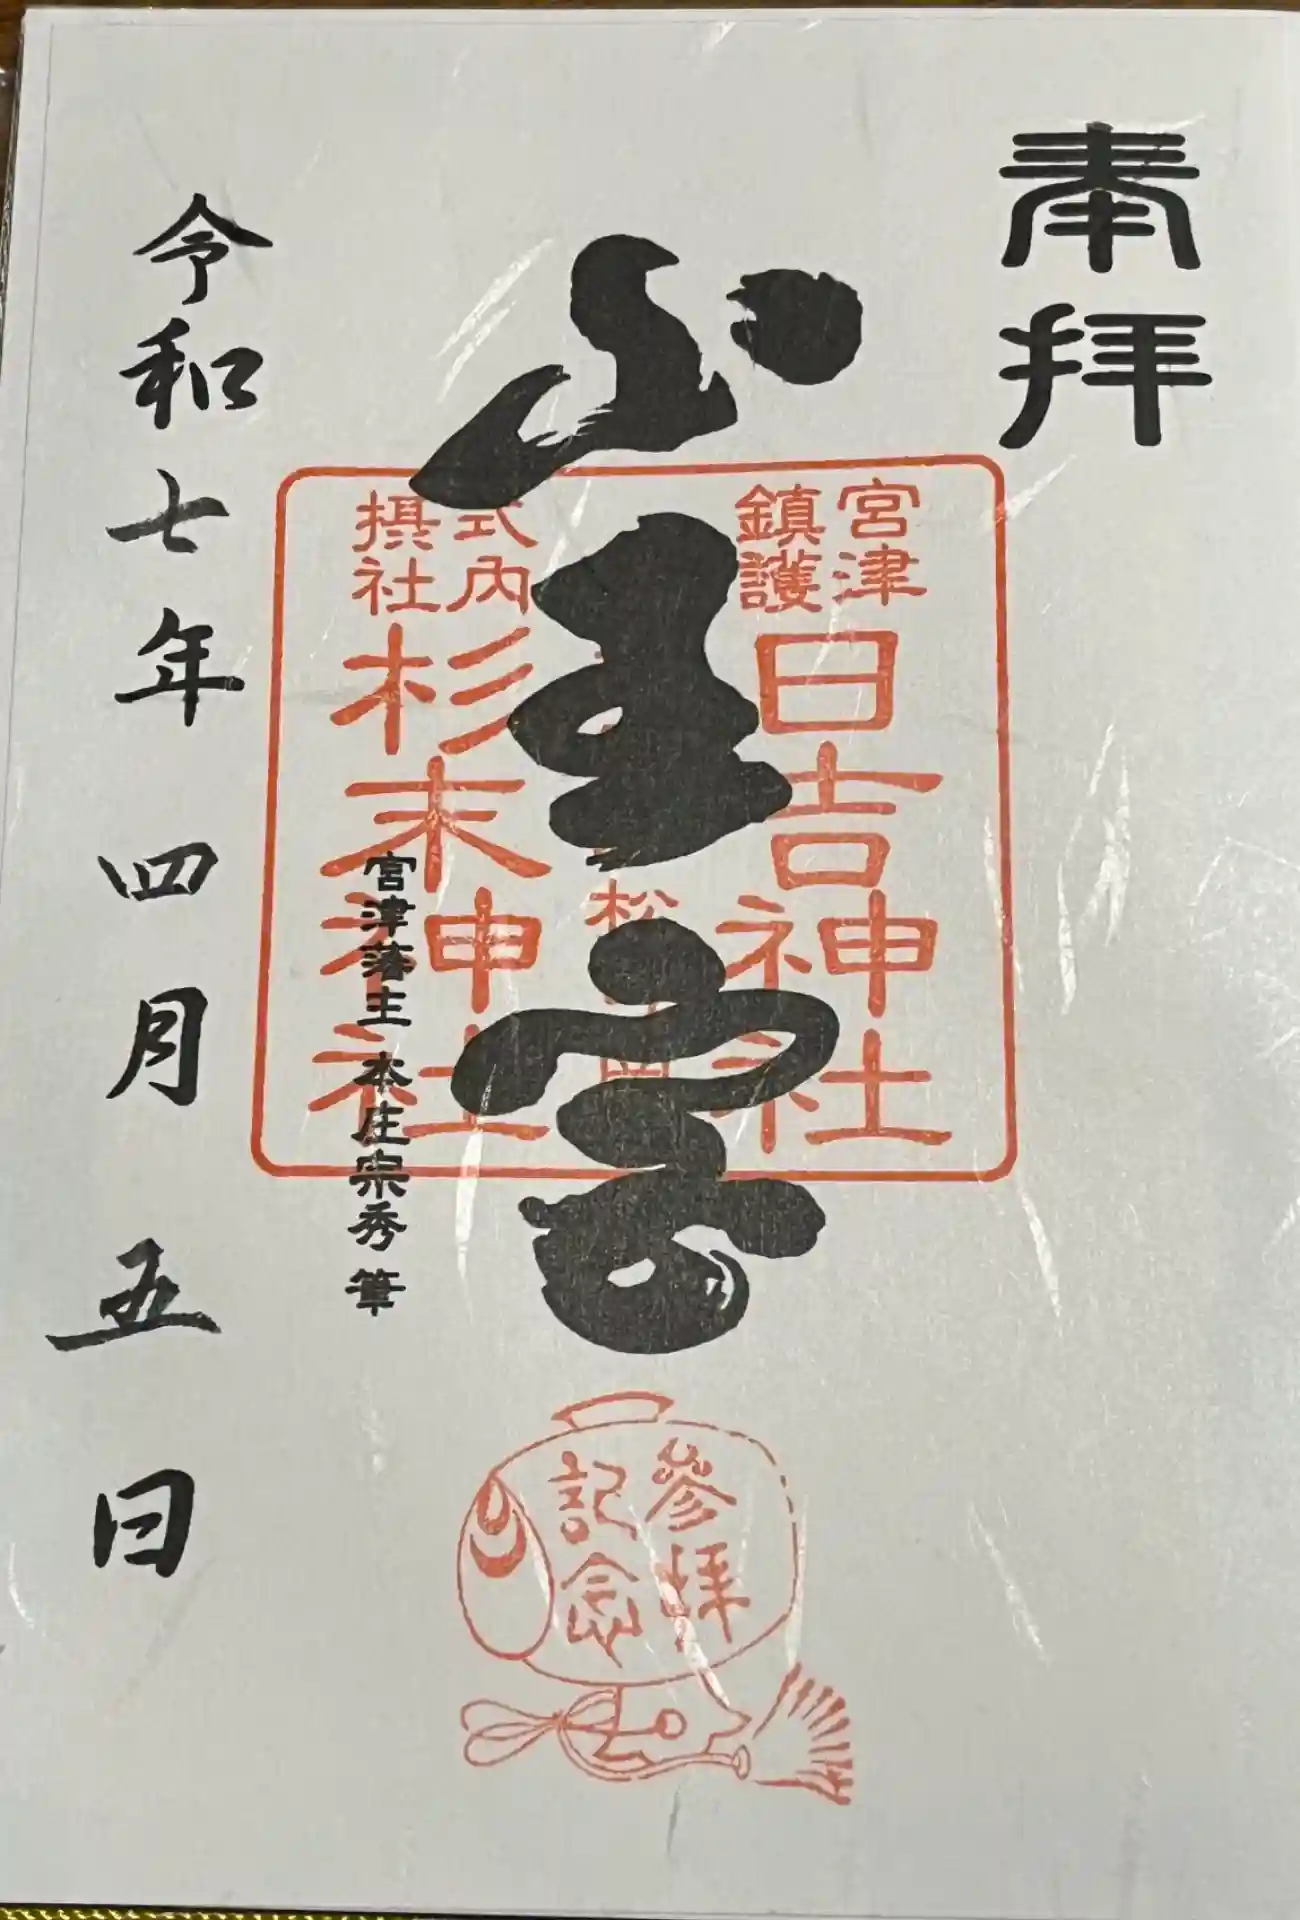 奉拝
宮津
鎮護
日吉神社
山王宮
式内
摂社
杉末神社
宮津藩主 本庄宗秀 筆
令和七年 四月 五日
參拝
記念